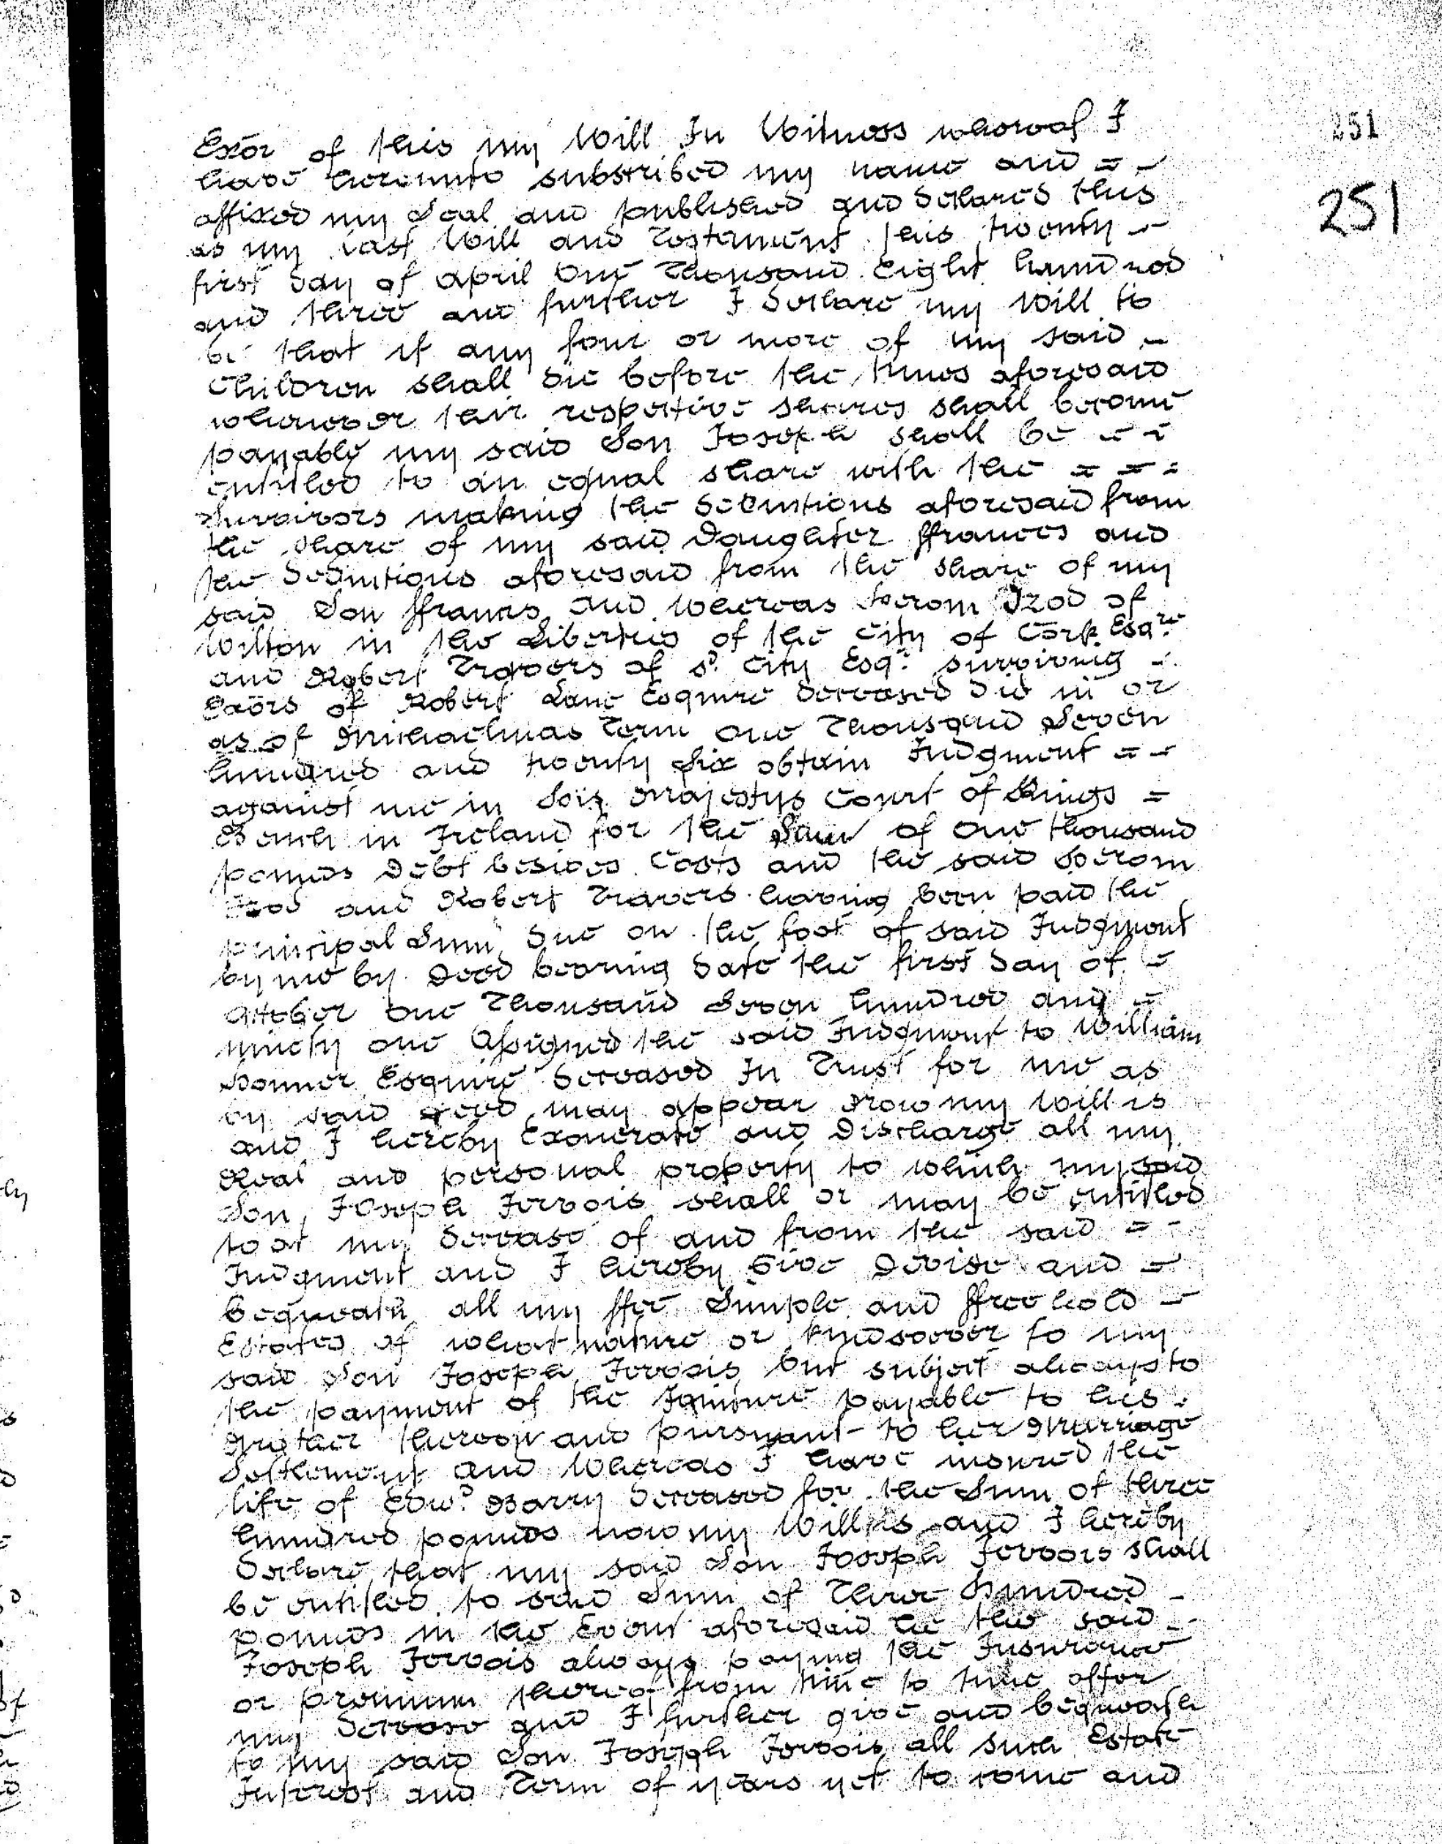 251
251
Exōr of this my Will In Witness whereof I
have hereunto subscribed my name and = -
affixed my Seal and published and declared this
as my last Will and Testament this twenty -
first day of April One Thousand Eight hundred
and three and further I declare my Will to
be that if any four or more of my said -
Children shall die before the times aforesaid
whenever their respective shares shall become
payable my said Son Joseph shall be - -
entitled to an equal share with the = = =
Survivors making the deductions aforesaid from
the share of my said Daughter ffrances and
the deductions aforesaid from the share of my
said Son ffrancis and Whereas Herom Izod of
Wilton in the Liberties of the City of Cork Esqre
and Robert Travers of sd. City Esqr. surviving -
Exōrs of Robert Lane Esquire deceased did in or
as of Michaelmas Term One Thousand Seven
hundred and twenty Six obtain Judgment = -
against me in His Majestys Court of Kings =
Bench in Ireland for the Sum of One thousand
pounds Debt besides Costs and the said Herom
Izod and Robert Travers having been paid the
principal Sum due on the foot of said Judgment
by me by Deed bearing date the first day of -
October One Thousand Seven hundred and =
ninety one Assigned the said Judgment to William
Honner Esquire deceased In Trust for me as
by said Deed may appear Now my Will is
and I hereby Exonerate and Discharge all my
Real and personal property to which my said
Son Joseph Jervois shall or may be entitled
to at my decease of and from the said = -
Judgment and I hereby Give Devise and =
bequeath all my ffee Simple and ffreehold -
Estates of what nature or kindsoever to my
said Son Joseph Jervois but subject always to
the payment of the Jointure payable to his
Mother thereon and pursuant to her Marriage
Settlement and Whereas I have insured the
life of Edwd. Barry deceased for the Sum of three
hundred pounds now my Will is and I hereby
declare that my said Son Joseph Jervois shall
be entitled to said Sum of Three Hundred -
pounds in the Event aforesaid he the said -
Joseph Jervois always paying the Insurance
or premium thereof from time to time after
my decease and I further give and bequeath
to my said Son Joseph Jervois all such Estate
Interest and Term of years yet to come and